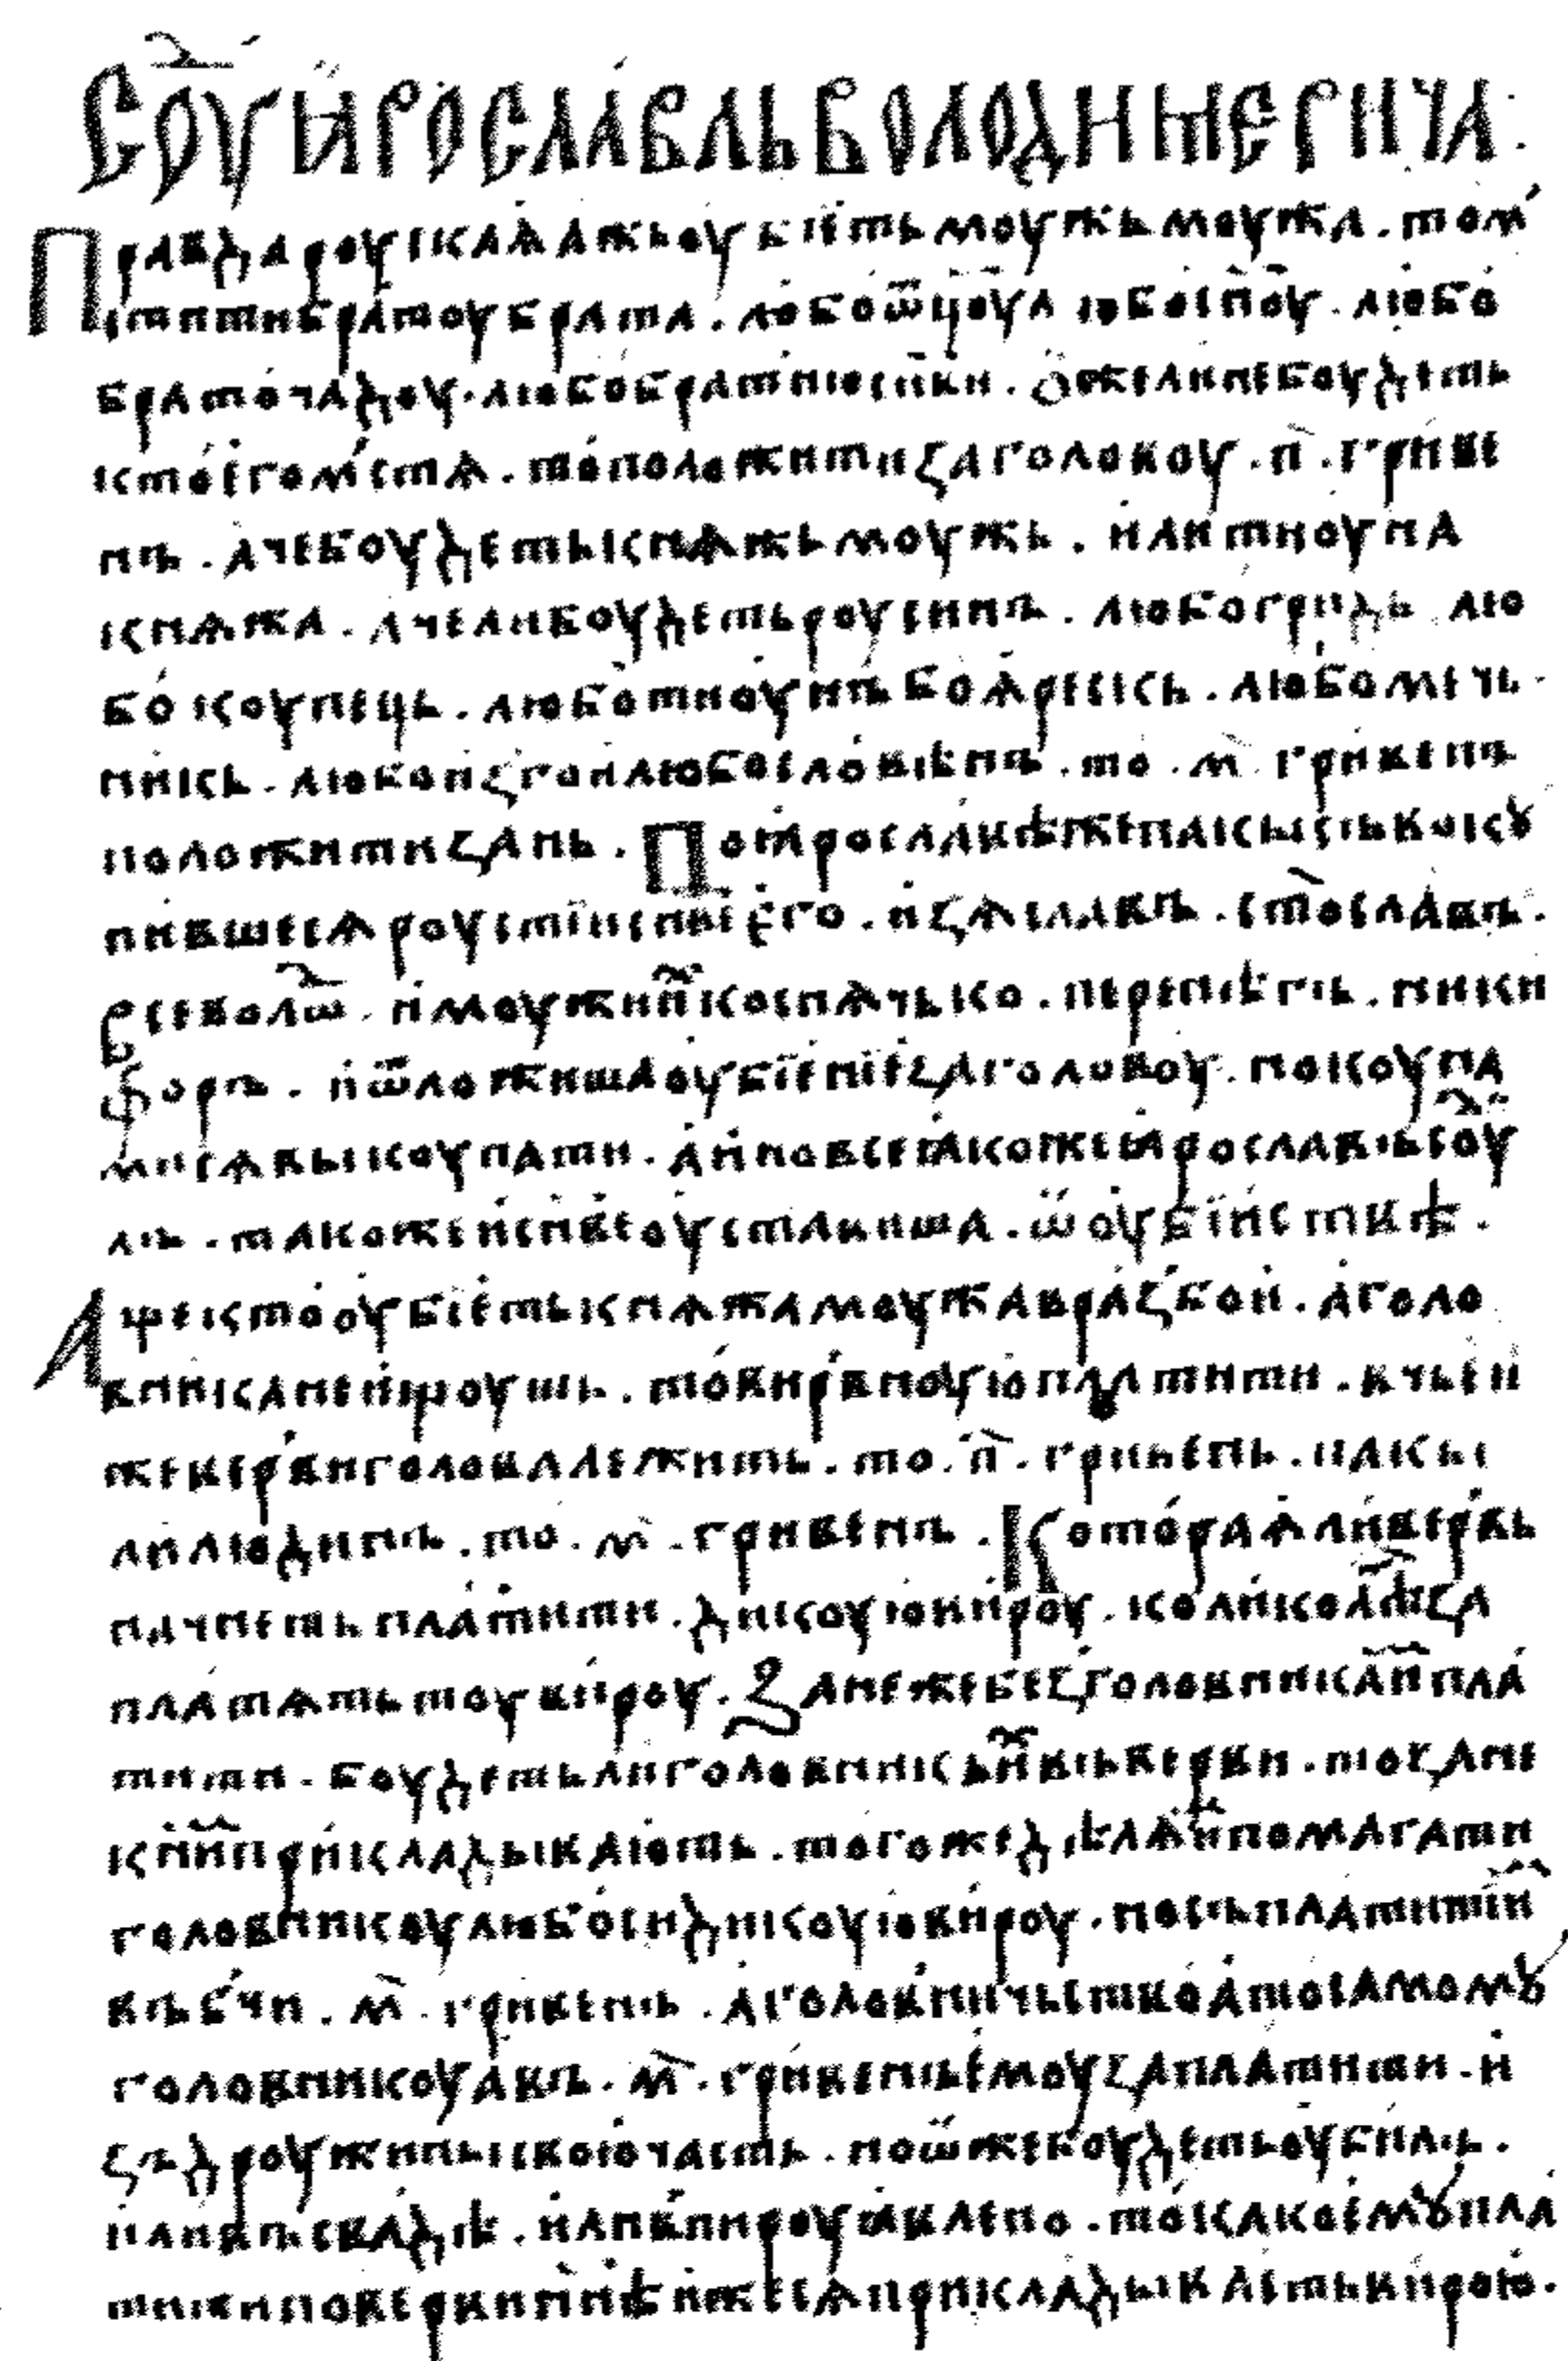 Сꙋ҃дъ ꙗрославль володимерича.
Правда роускаꙗ. ажь оубиѥть моужь моужа. то м
стити братоу брата. любо ѿцю. а любо сн҃оу. любо
браточадоу. любо братню сн҃ви. Оже ли не боудеть
кто ѥго мьстѧ. то положити за головоу. п҃. гриве
нъ. аче боудеть кнѧжь моужь. или тиоуна
кнѧжа. аче ли боудеть роусинъ. любо гридь. лю
бо коупець. любо тиоунъ боѧрескъ. любо мечь
никъ. любо изгои любо словѣнинъ. то. м҃. гривенъ
положити за нь. По ꙗрославѣ же пакы съвъкꙋ
пившесѧ роусти сн҃ве ѥго. изѧславъ. ст҃ославъ.
Всеволѡ. и моужи ихъ коснѧчько. перенѣгъ. ники
форъ. и ѿложиша оубиѥниѥ за головоу. но коуна
ми сѧ выкоупати. а ино все ꙗкоже ꙗрославъ соу
дъ. такоже и сн҃ве оуставиша. ѿ оубииствѣ.
Аще кто оубиѥть кнѧжа моужа в разбои. а голо
вника не ищоуть. то вирьвноую платити. в чьеи
же верви голова лежить. то. п҃. гривенъ. пакы
ли людинъ. то. м҃. гривенъ. Котораѧ ли вервь
начнеть платити. дикоую вироу. колико лѣ за
платѧть тоу вироу. Занеже без головника имъ пла
тити. боудеть ли головникъ ихъ въ верви. то зане
к нимъ прикладываѥть. того же дѣлѧ имъ помагати
головникоу любо си дикоую вироу. но съплатити имъ
въ бчи. м҃. гривенъ. а головничьство а то самомꙋ
головникоу а въ. м҃. гривенъ ѥмоу заплатити. и
зъ дроужины свою часть. но ѡже боудеть оубилъ.
или въ свадѣ. или в пироу ꙗвлено. то тако ѥмꙋ пла
тити по верви нынѣ иже сѧ прикладываѥть вирою.